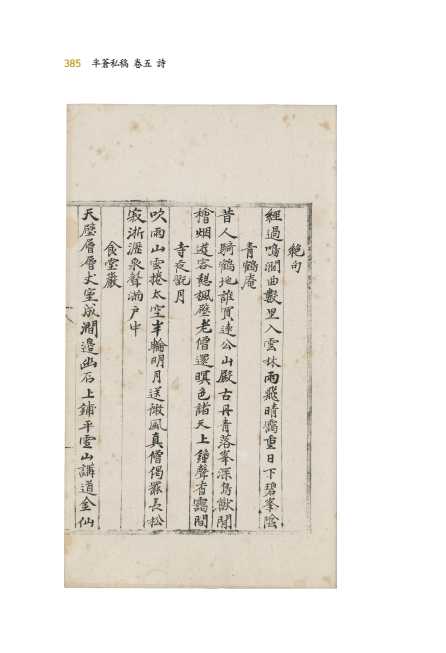 385 半蒼私稿 卷五 詩
絕句
經過鳴澗曲數里入雲林雨飛晴靄重日下碧峯陰
青鶴庵
昔人騎鶴地誰買遠公山殿古丹青落峯深鳥獸閒
檜烟遊客憩楓壁老僧還暝色諸天上鐘聲杳靄間
寺夜翫月
吹雨山雲捲太空半輪明月送微風真僧偈罷長松
寂淅瀝泉聲滿戶中
食堂巖
天壁層層丈室成澗邊幽石上鋪平靈山講道金仙